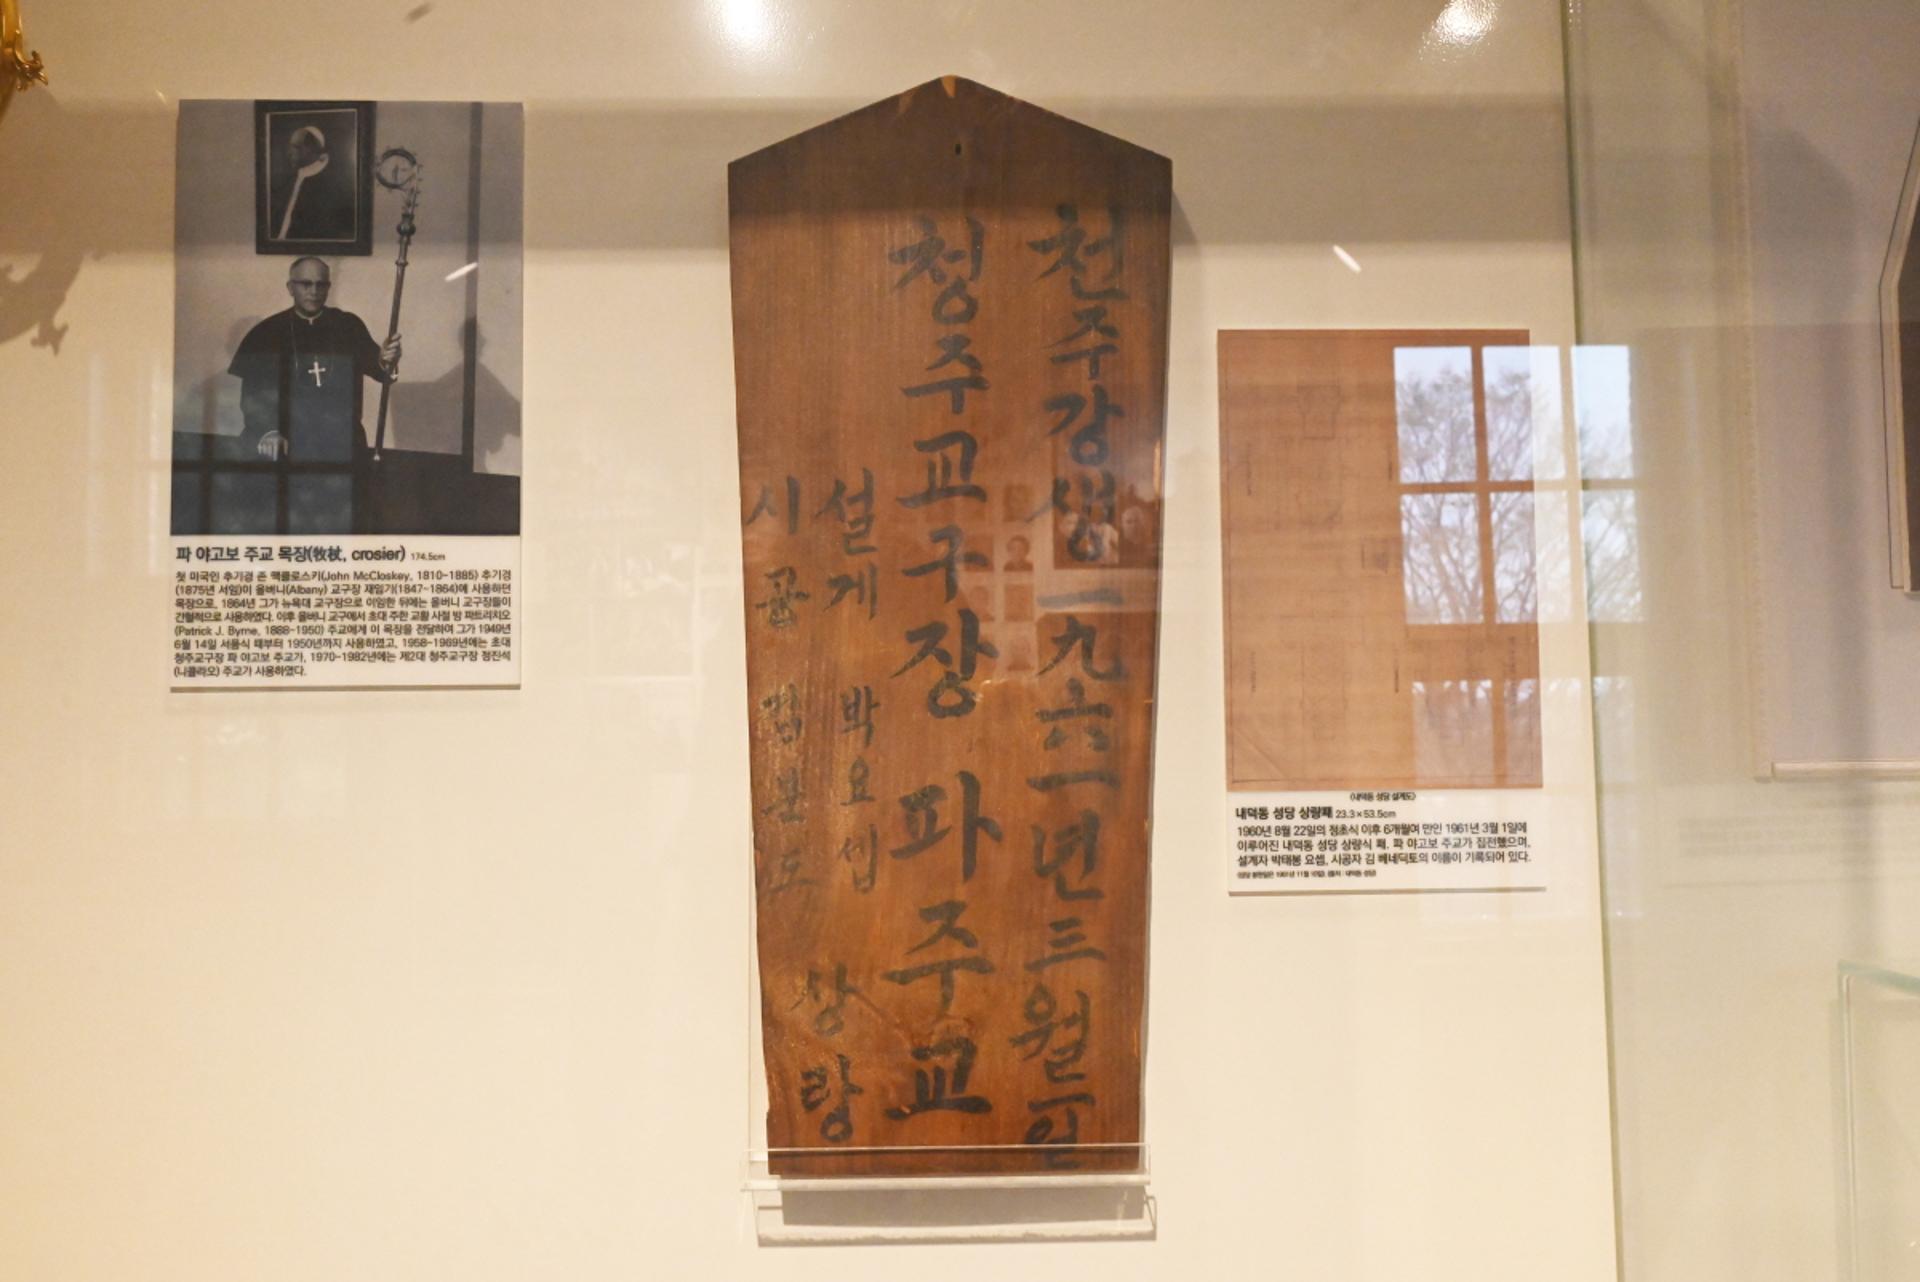 파 야고보 주교 목장(牧杖, crosier) 174.5cm
첫 미국인 추기경 존 맥클로스키(John McCloskey, 1810-1885) 추기경
(1875년 서임)이 올버니(Albany) 교구장 재임기(1847-1864)에 사용하던
목장으로, 1864년 그가 뉴욕대 교구장으로 이임한 뒤에는 올버니 교구장들이
간헐적으로 사용하였다. 이후 올버니 교구에서 초대 주한 교황 사절 방 파트리치오
(Patrick J. Byrne, 1888-1950) 주교에게 이 목장을 전달하여 그가 1949년
6월 14일 서품식 때부터 1950년까지 사용하였고, 1958-1969년에는 초대
청주교구장 파 야고보 주교가, 1970-1982년에는 제2대 청주교구장 정진석
(니콜라오) 주교가 사용하였다.
천주강생一九六一년三월一일
청주교구장 파주교
설계 박요셉
시공 김분도
상량
《내덕동 성당 설계도》
내덕동 성당 상량패 23.3×53.5cm
1960년 8월 22일의 정초식 이후 6개월여 만인 1961년 3월 1일에
이루어진 내덕동 성당 상량식 패. 파 야고보 주교가 집전했으며,
설계자 박태봉 요셉, 시공자 김 베네딕토의 이름이 기록되어 있다.